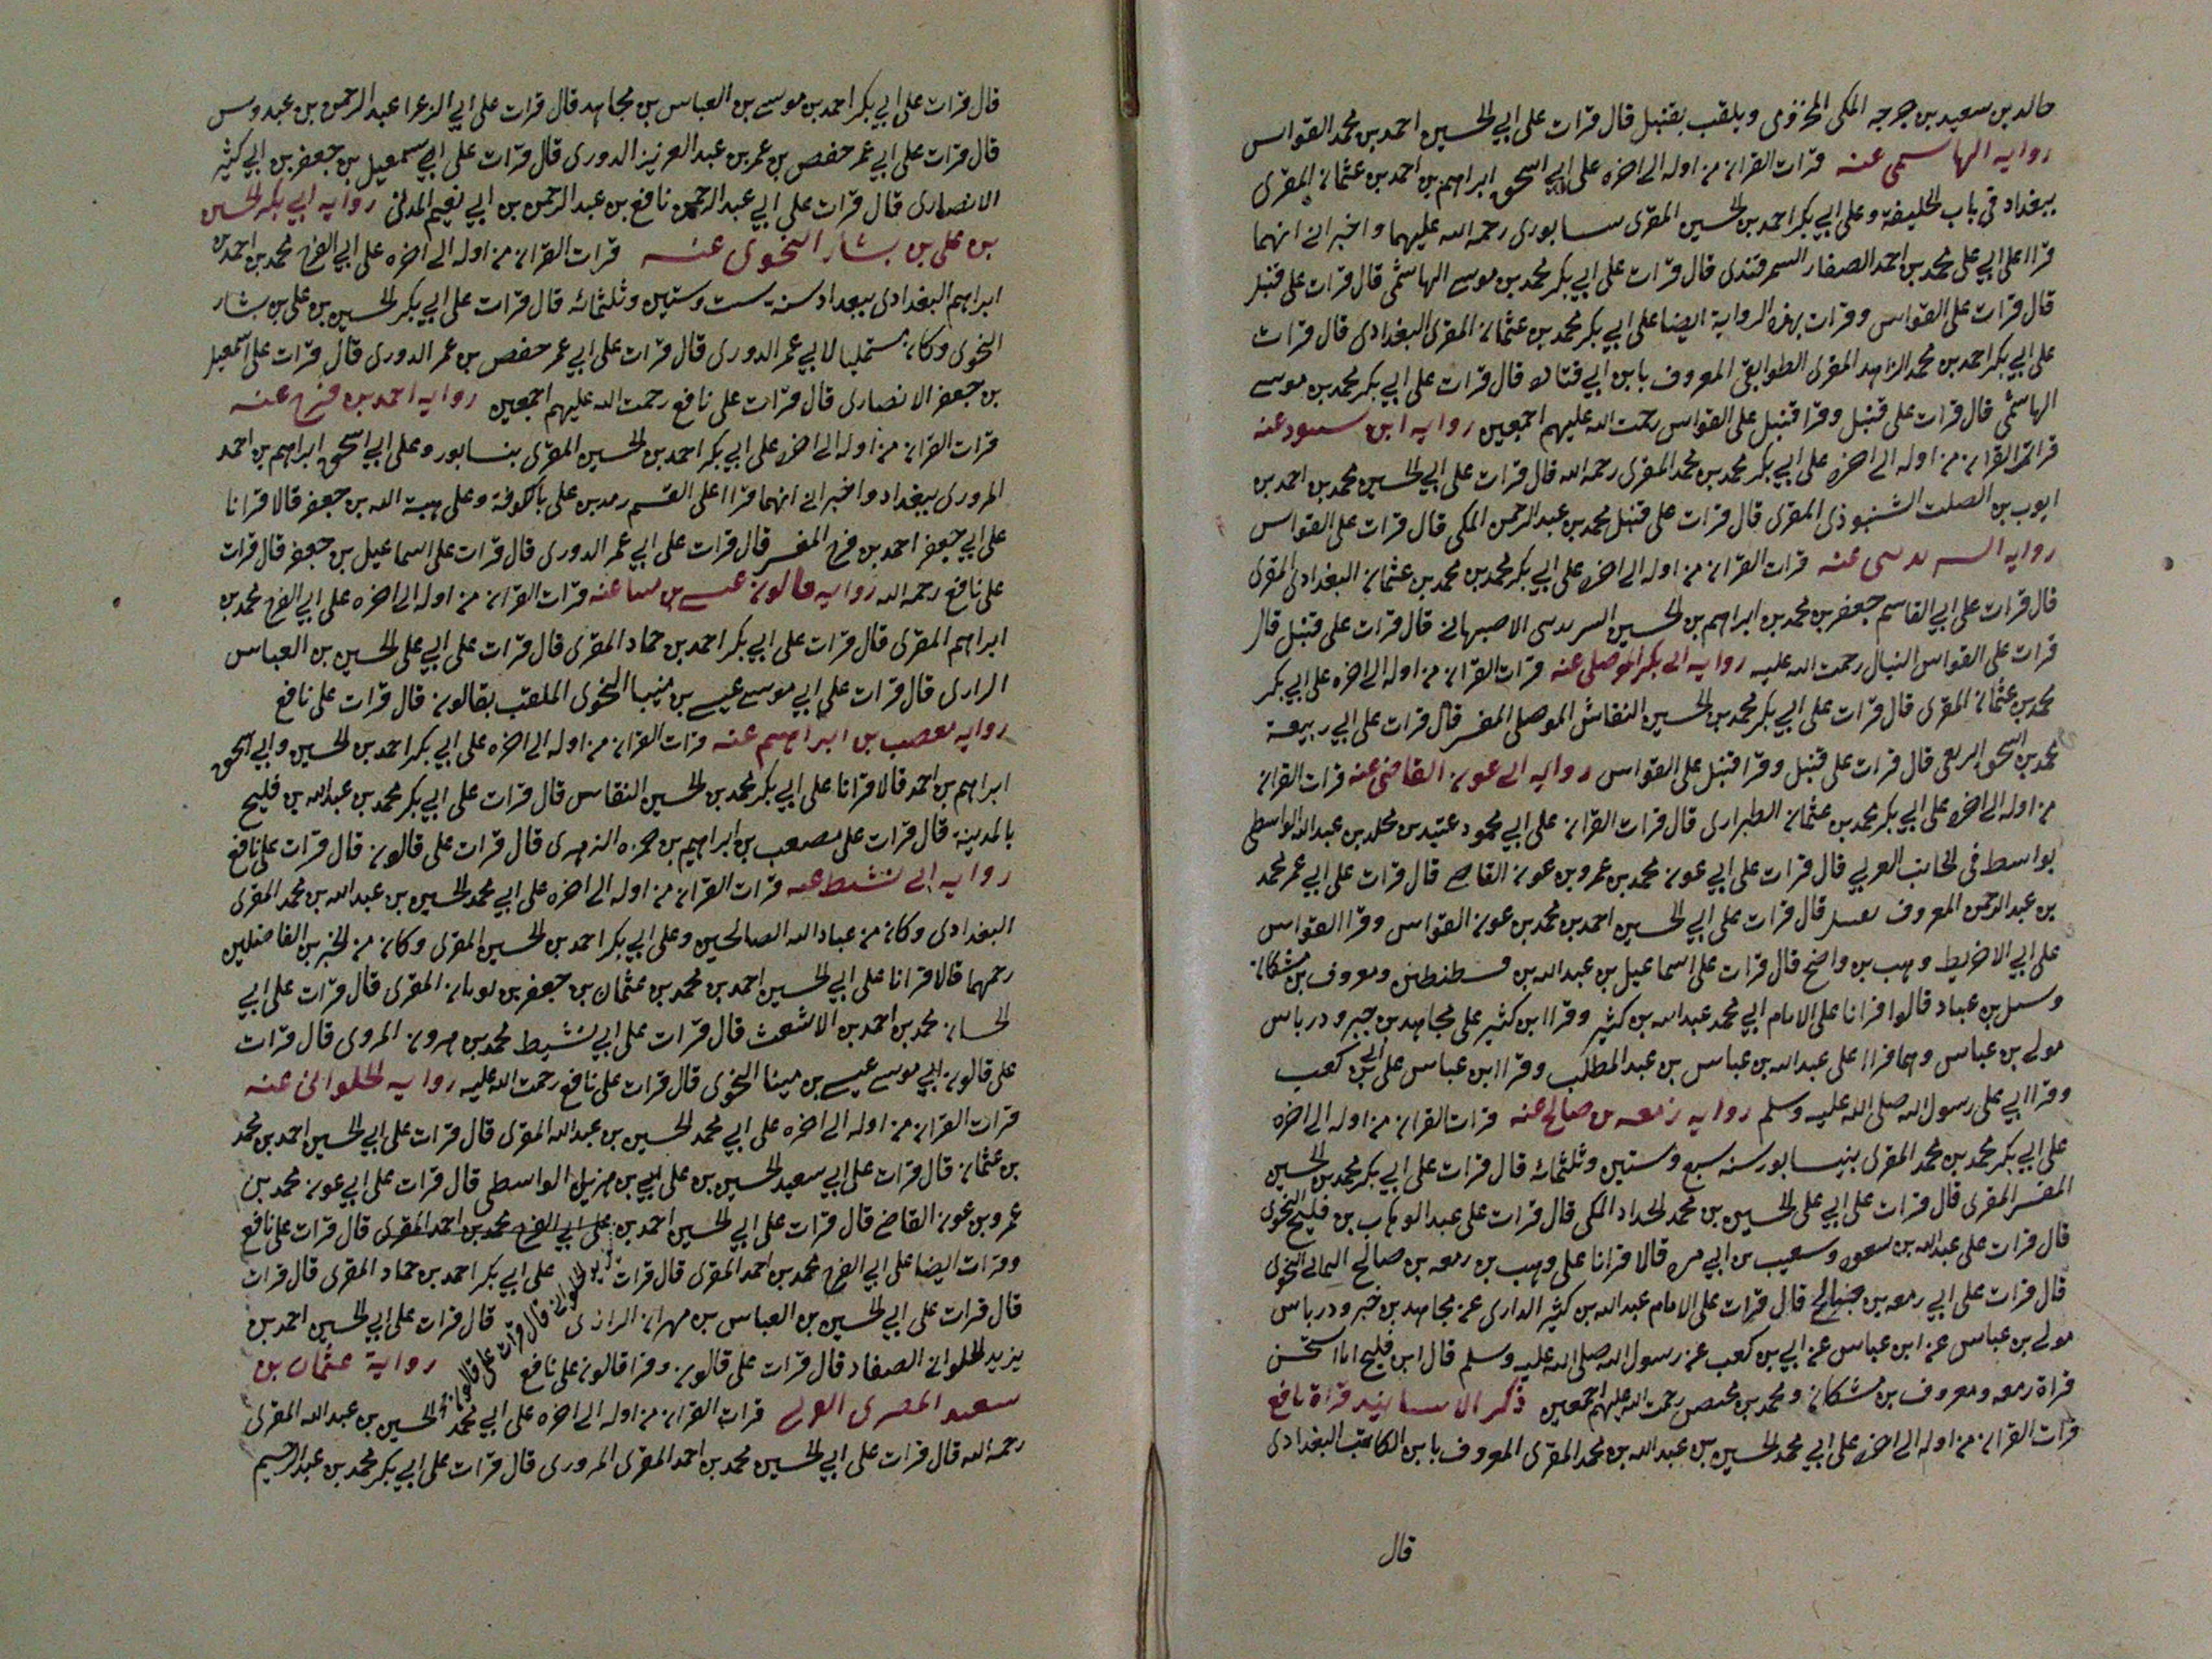 خالد بن سعيد بن جرجه المكى المخزومى ويلقب بقنبل قال قرات على ابي الحسين احمد بن محمد القواس
روايه الهاسمى عنه قرات القران من اوله الى اخره على ابي اسحق ابراهيم بن احمد بن عثمان المقرى
ببغداد فى باب الخليفة وعلى ابي بكر احمد بن الحسين المقرى سابورى رحمه الله عليهما واخبرانى انهما
قراا على ابي على محمد بن احمد الصفار السمرقندى قال قرات على ابي بكر محمد بن موسى الهاشمى قال قرات على قنبل
قال قرات على القواس وقرات بهذه الرواية ايضا على ابي بكر محمد بن عثمان المقرى البغدادى قال قرات
على ابي بكر احمد بن محمد الزاهد المقرى الطوابقى المعروف بابن ابي قتاده قال قرات على ابي بكر محمد بن موسى
الهاشمى قال قرات على قنبل وقرا قنبل على القواس رحمت الله عليهم اجمعين روايه ابن سنبود عنه
قرات القران من اوله الى اخره على ابي بكر محمد بن محمد المقرى رحمه الله قال قرات على ابي الحسين محمد بن احمد بن
ايوب بن الصلت الشنبوذى المقرى قال قرات على قنبل محمد بن عبد الرحمن المكى قال قرات على القواس
روايه السرىدىسى عنه قرات القران من اوله الى اخره على ابي بكر محمد بن محمد بن عثمان البغدادى المقرى
قال قرات على ابي القاسم جعفر بن محمد بن ابراهيم بن الحسين الاصبهانى قال قرات على قنبل قال
قرات على القواس النبال رحمت الله عليه روايه ابى بكر الموصلى عنه قرات القران من اوله الى اخره على ابي بكر
محمد بن عثمان المقرى قال قرات على ابي بكر محمد بن الحسين النقاش الموصلى المفسر قال قرات على ابي ربيعة
محمد بن اسحق الربعى قال قرات على قنبل وقرا قنبل على القواس روايه ابى عون القاضى عنه قرات القران
من اوله الى اخره على ابي بكر محمد بن عثمان الطرازى قال قرات القران على ابي محمود عتيد بن مخلد بن عبد الله الواسطى
بواسط فى الجانب الغربي قال قرات على ابي عون محمد بن عمرو بن عون القاضى قال قرات على ابي عمر محمد
بن عبد الرحمن المعروف بقنبل قال قرات على ابي الحسين احمد بن محمد بن عون القواس وقرا القواس
على ابي الاخريط وهب بن واضح قال قرات على اسماعيل بن عبد الله بن قسطنطين ومعروف بن مشكان
وسبل بن عباد قالوا قرانا على الامام ابي محمد عبد الله بن كثير وقرا ابن كثير على مجاهد بن جبر ودرباس
مولى بن عباس وهما قراا على عبد الله بن عباس بن عبد المطلب وقرا ابن عباس على ابي بن كعب
وقرا ابي على رسول الله صلى الله عليه وسلم روايه زمعه بن صالح عنه قرات القران من اوله الى اخره
على ابي بكر محمد بن محمد المقرى بنيسابور سنه سبع وستين وثلثمائة قال قرات على ابي بكر محمد بن الحسين
المفسر المقرى قال قرات على ابي على الحسين بن محمد الحداد المكى قال قرات على عبد الوهاب بن فليح النحوى
قال قرات على عبد الله بن سعون وسعيب بن ابي مره قالا قرانا على وهب بن زمعه بن صالح اليمانى النحوى
قال قرات على ابي زمعه بن صالح قال قرات على الامام عبد الله بن كثير الدارى عن مجاهد بن جبر ودرباس
مولى بن عباس عن ابن عباس عن ابي بن كعب عن رسول الله صلى الله عليه وسلم قال ابن فليح انا استحسن
قراة زمعه ومعروف بن مشكان ومحمد بن محيصن رحمت الله عليهم اجمعين ذكر الاسانيد قراة نافع
قرات القران من اوله الى اخره على ابي محمد الحسين بن عبد الله بن محمد المقرى المعروف بابن الكاتب البغدادى
قال
قال قرات على ابي بكر احمد بن موسى بن العباس بن مجاهد قال قرات على ابي الزعرا عبد الرحمن بن عبدوس
قال قرات على ابي عمر حفص بن عمر بن عبد العزيز الدورى قال قرات على ابي سمعيل بن جعفر بن ابي كثير
الانصارى قال قرات على ابي عبد الرحمن نافع بن عبد الرحمن بن ابي نعيم المدنى روايه ابي بكر الحسين
بن على بن بشار النحوى عنه قرات القران من اوله الى اخره على ابي الفرج محمد بن احمد بن
ابراهيم البغدادى ببغداد سنة ست وستين وثلثمائه قال قرات على ابي بكر الحسين بن على بن بشار
النحوى وكان مستمليا لابي عمر الدورى قال قرات على ابي عمر حفص بن عمر الدورى قال قرات على اسمعيل
بن جعفر الانصارى قال قرات على نافع رحمت الله عليهم اجمعين روايه احمد بن فرح عنه
قرات القران من اوله الى اخره على ابي بكر احمد بن الحسين المقرى بنسابور وعلى ابي اسحق ابراهيم بن احمد
المروزى ببغداد واخبرانى انهما قراا على القسم زيد بن على بالكوفة وعلى هبة الله بن جعفر قالا قرانا
على ابي جعفر احمد بن فرح المفسر قال قرات على ابي عمر الدورى قال قرات على اسماعيل بن جعفر قال قرات
على نافع رحمه الله روايه قالون عيسى بن مينا عنه قرات القران من اوله الى اخره على ابي الفرج محمد بن
ابراهيم المقرى قال قرات على ابي بكر احمد بن حماد المقرى قال قرات على ابي على الحسين بن العباس
الرازى قال قرات على ابي موسى عيسى بن مينا النحوى الملقب بقالون قال قرات على نافع
روايه مصعب بن ابراهيم عنه قرات القران من اوله الى اخره على ابي بكر احمد بن الحسين وابي اسحق
ابراهيم بن احمد قالا قرانا على ابي بكر محمد بن الحسين النقاس قال قرات على ابي بكر محمد بن عبد الله بن فليح
بالمدينة قال قرات على مصعب بن ابراهيم بن حمزه الزهرى قال قرات على قالون قال قرات على نافع
روايه ابى نشيط عنه قرات القران من اوله الى اخره على ابي محمد الحسين بن عبد الله بن محمد المقرى
البغدادى وكان من عباد الله الصالحين وعلى ابي بكر احمد بن الحسين المقرى وكان من الخيرين الفاضلين
رحمهما قالا قرانا على ابي الحسين احمد بن محمد بن عثمان بن جعفر بن بويان المقرى قال قرات على ابي
الحسان محمد بن احمد بن الاشعث قال قرات على ابي نشيط محمد بن هرون المروى قال قرات
على قالون ابي موسى عيسى بن مينا النحوى قال قرات على نافع رحمت الله عليه روايه الحلوانى عنه
قرات القران من اوله الى اخره على ابي محمد الحسين بن عبد الله المقرى قال قرات على ابي الحسين احمد بن محمد
بن عثمان قال قرات على ابي سعيد الحسين بن على بن هزيل الواسطى قال قرات على ابي عون محمد بن
عمرو بن عون القاضى قال قرات على ابي الحسين احمد بن على ابي الفرج محمد بن احمد المقرى قال قرات على نافع
وقرات ايضا على ابي الفرج محمد بن احمد المقرى قال قرات على ابي بكر احمد بن حماد المقرى قال قرات
يزيد الحلوانى قال قرات على قالون قال
قال قرات على ابي الحسين بن العباس بن مهران الرازى قال قرات على ابي الحسين احمد بن
يزيد الحلوانى الصفاد قال قرات على قالون وقرا قالون على نافع رواية عثمان بن
سعيد المصرى قرات القران من اوله الى اخره على ابي محمد الحسين بن عبد الله المقرى
رحمه الله قال قرات على ابي الحسين محمد بن احمد المقرى المروزى قال قرات على ابي بكر محمد بن عبد الرحيم